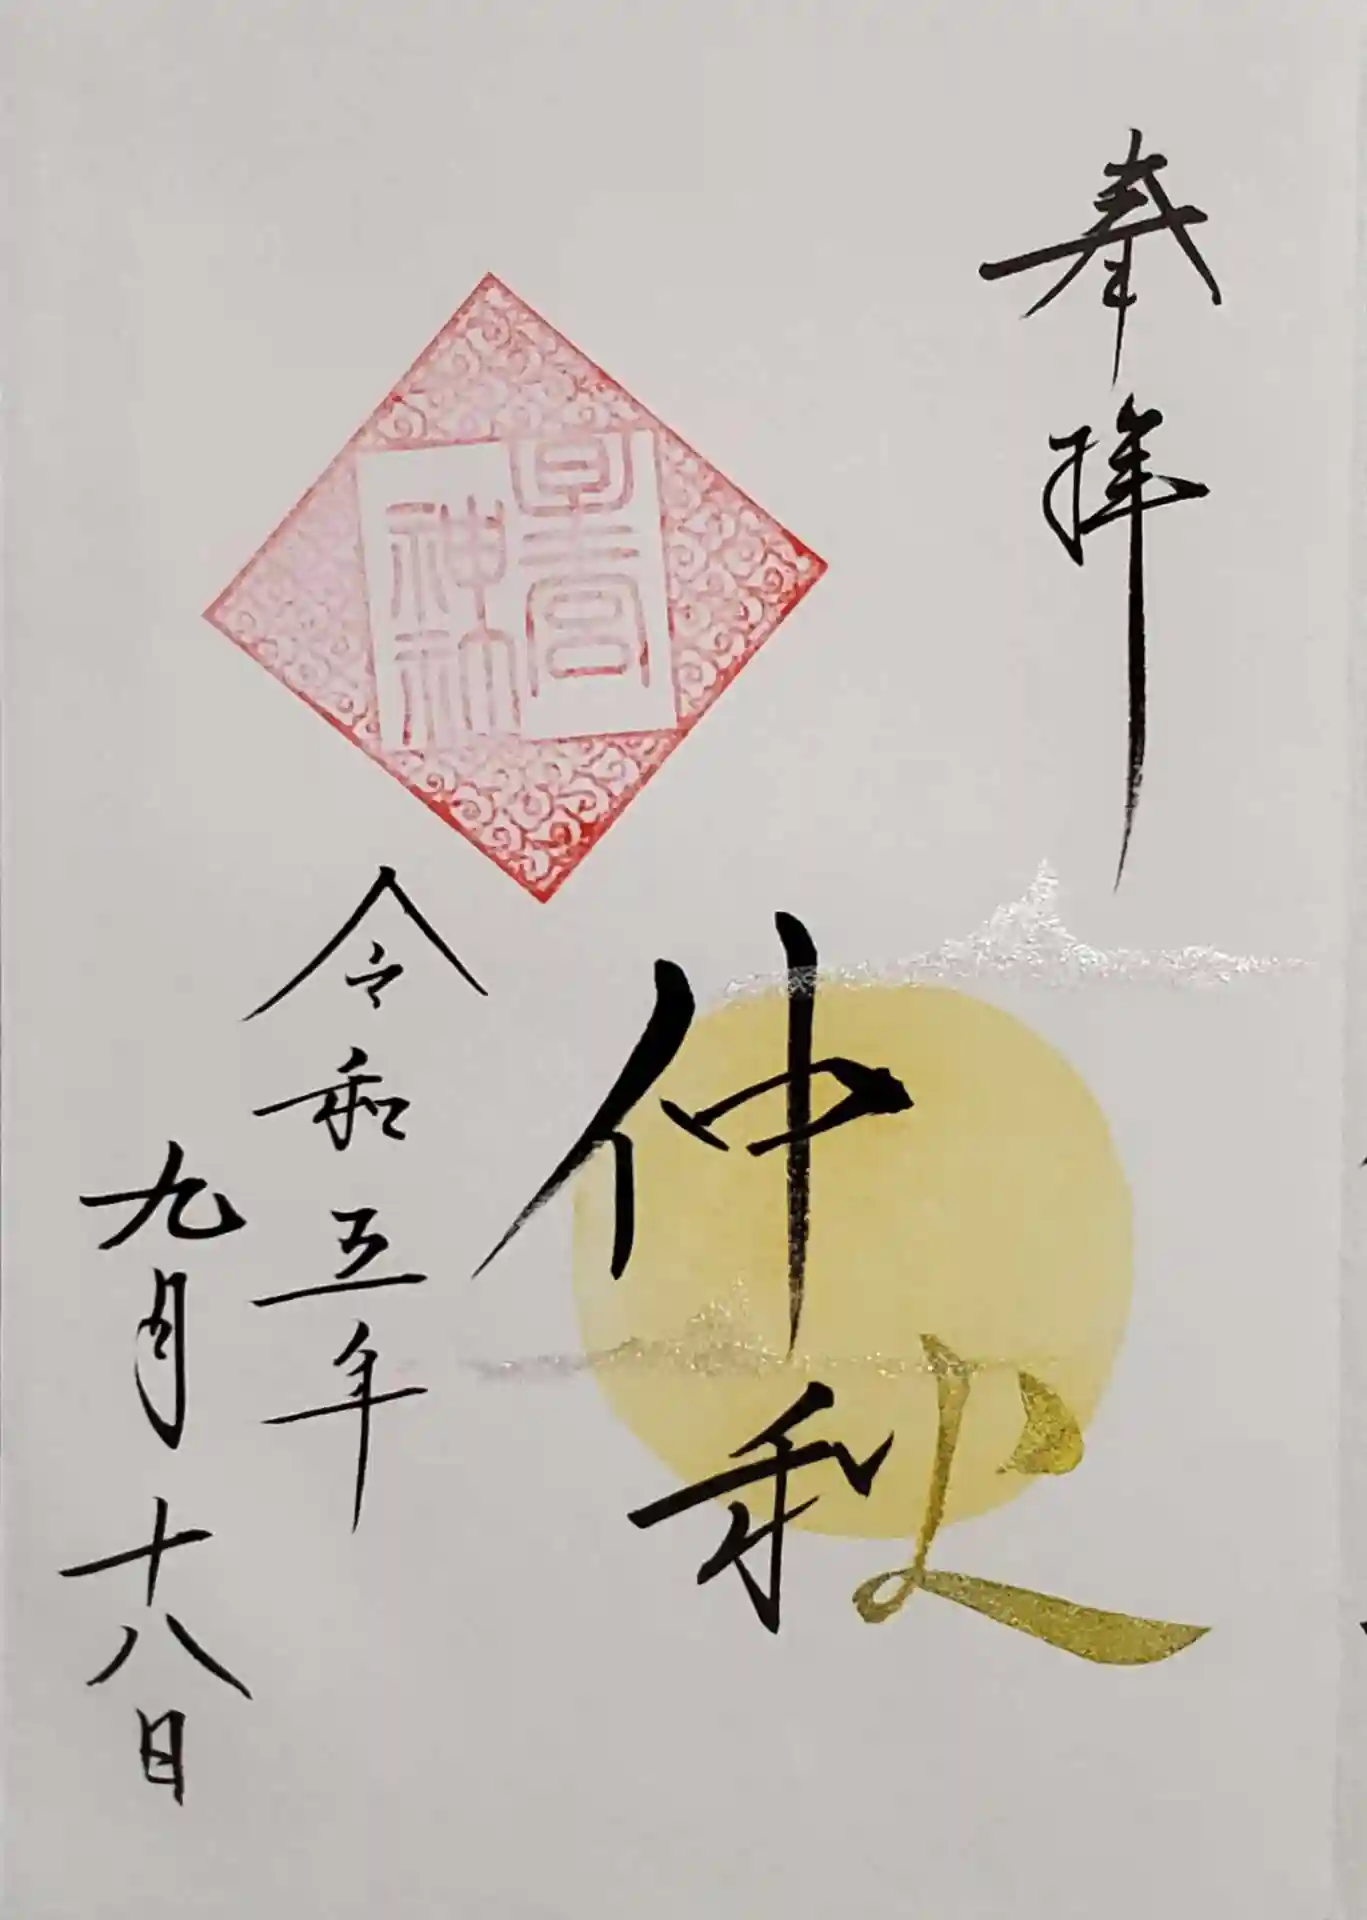 奉拝
仲秋
宮
神社
令和五年
九月十八日